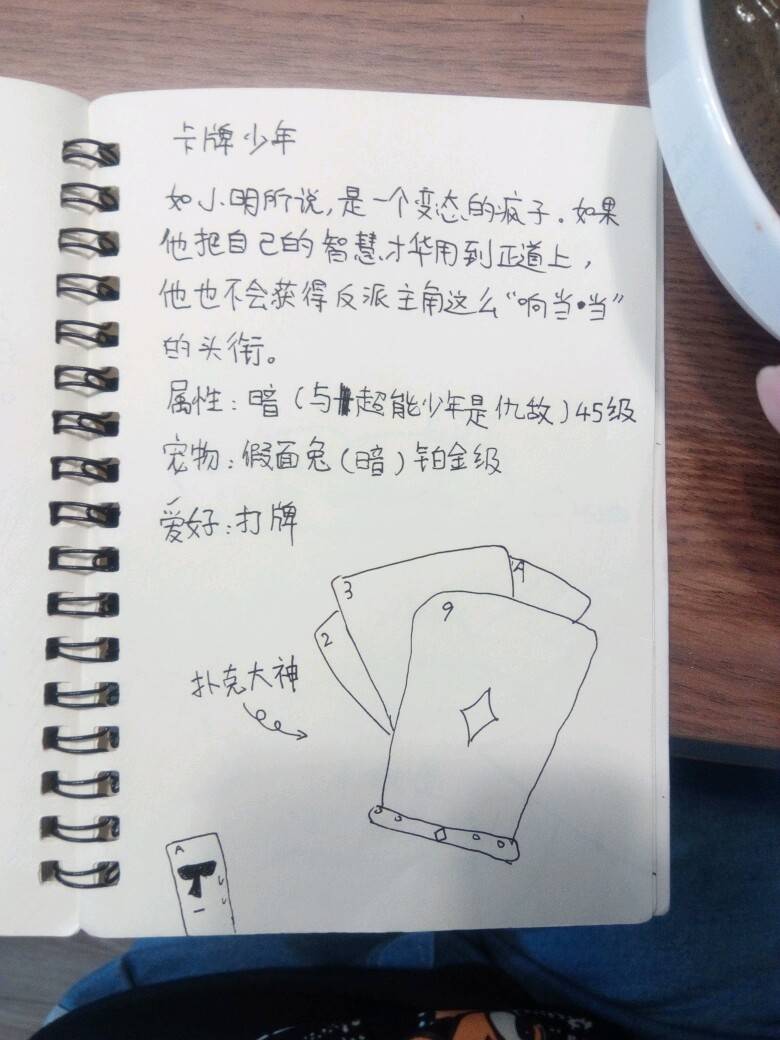 卡牌少年
如小明所说,是一个变态的疯子.如果
他把自己的智慧才华用到正道上,
他也不会获得反派主角这么“响当•当”
的头衔。
属性:暗(与超能少年是仇敌)45级
宠物:假面兔(暗)铂金级
爱好:打牌
A
3
9
2
扑克大神
A